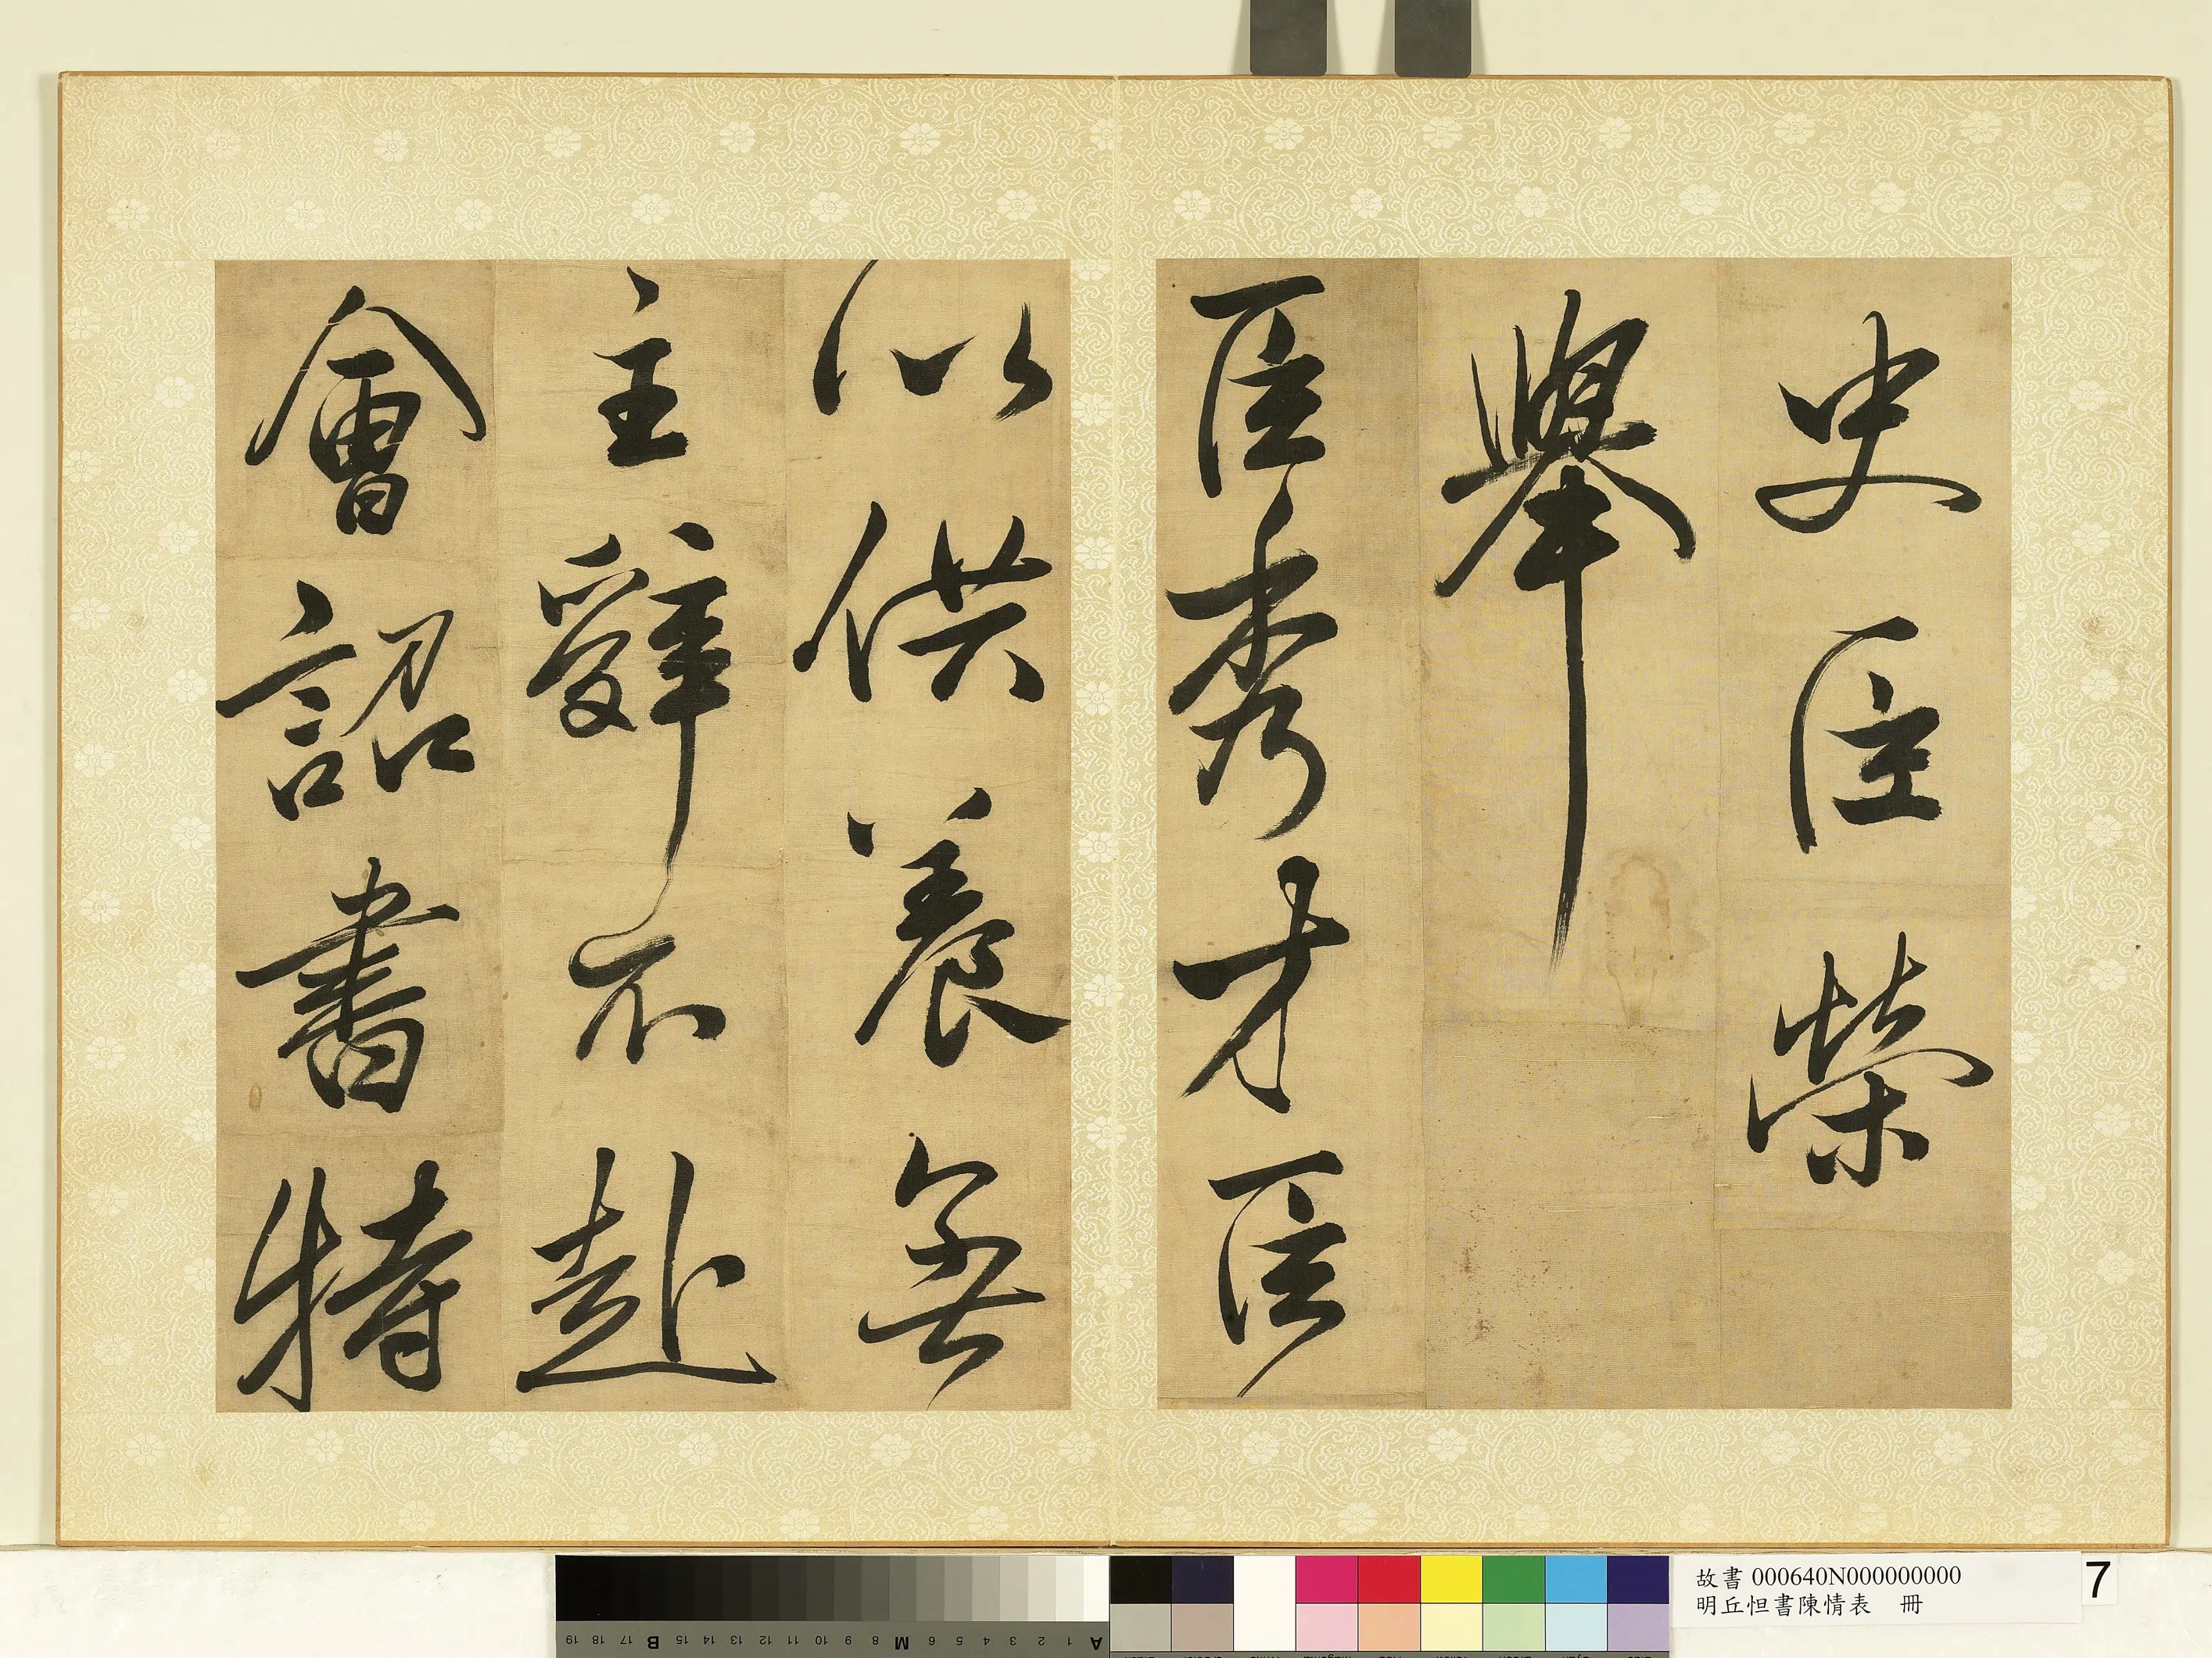 史臣榮
舉
臣秀才臣
以供養無
主辭不赴
會詔書特
故書 000640N000000000
明丘怛書陳情表 冊
7
19 18 17 B 16 15 14 13 12 11 10 9 8 M 7 6 5 4 3 2 1 A